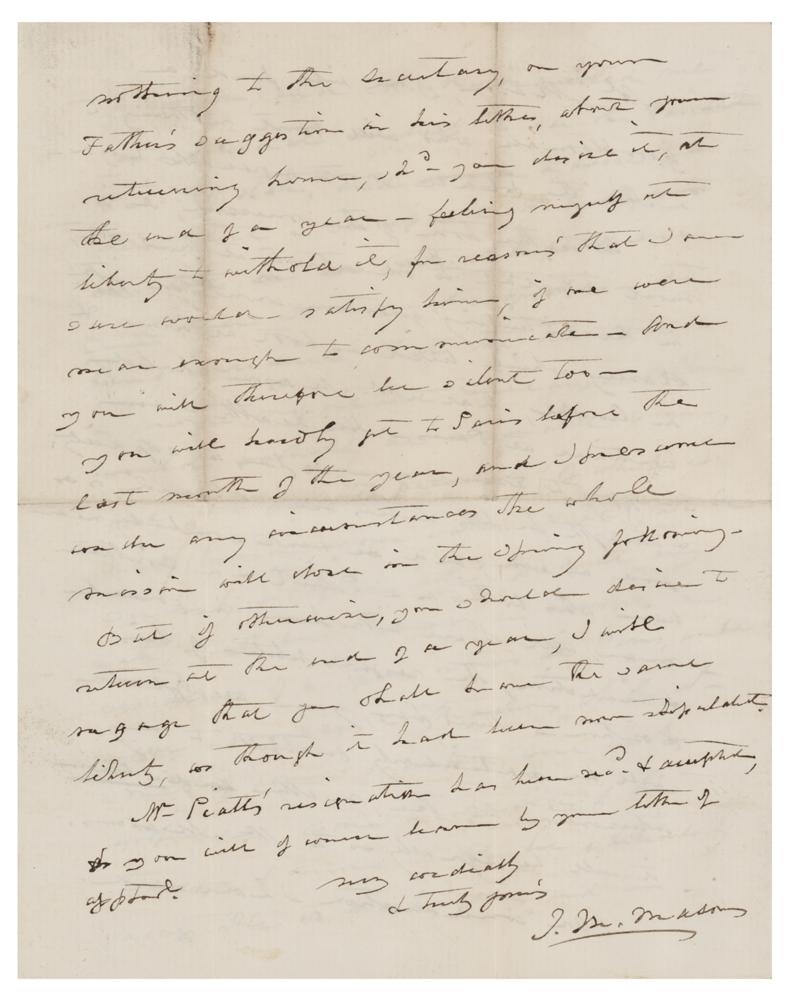 nothing to the Secretary, on your
Father's suggestion in his letter, about your
returning home, shd. you desire it, at
the end of a year — feeling myself at
liberty to withold it, for reasons that I am
sure would satisfy him, if we were
near enough to communicate — And
you will therefore be silent too —
you will hardly get to Paris before the
last month of the year, and I presume
under any circumstances the whole
mission will close in the Spring following —
But if otherwise, you should desire to
return at the end of a year, I will
engage that you shall have the same
liberty, as though it had been now stipulated.
Mr Piatt's resignation has been recd. & accepted,
as you will of course learn by your letter of
apptmt.
very cordially
& truly yours
J. M. Mason